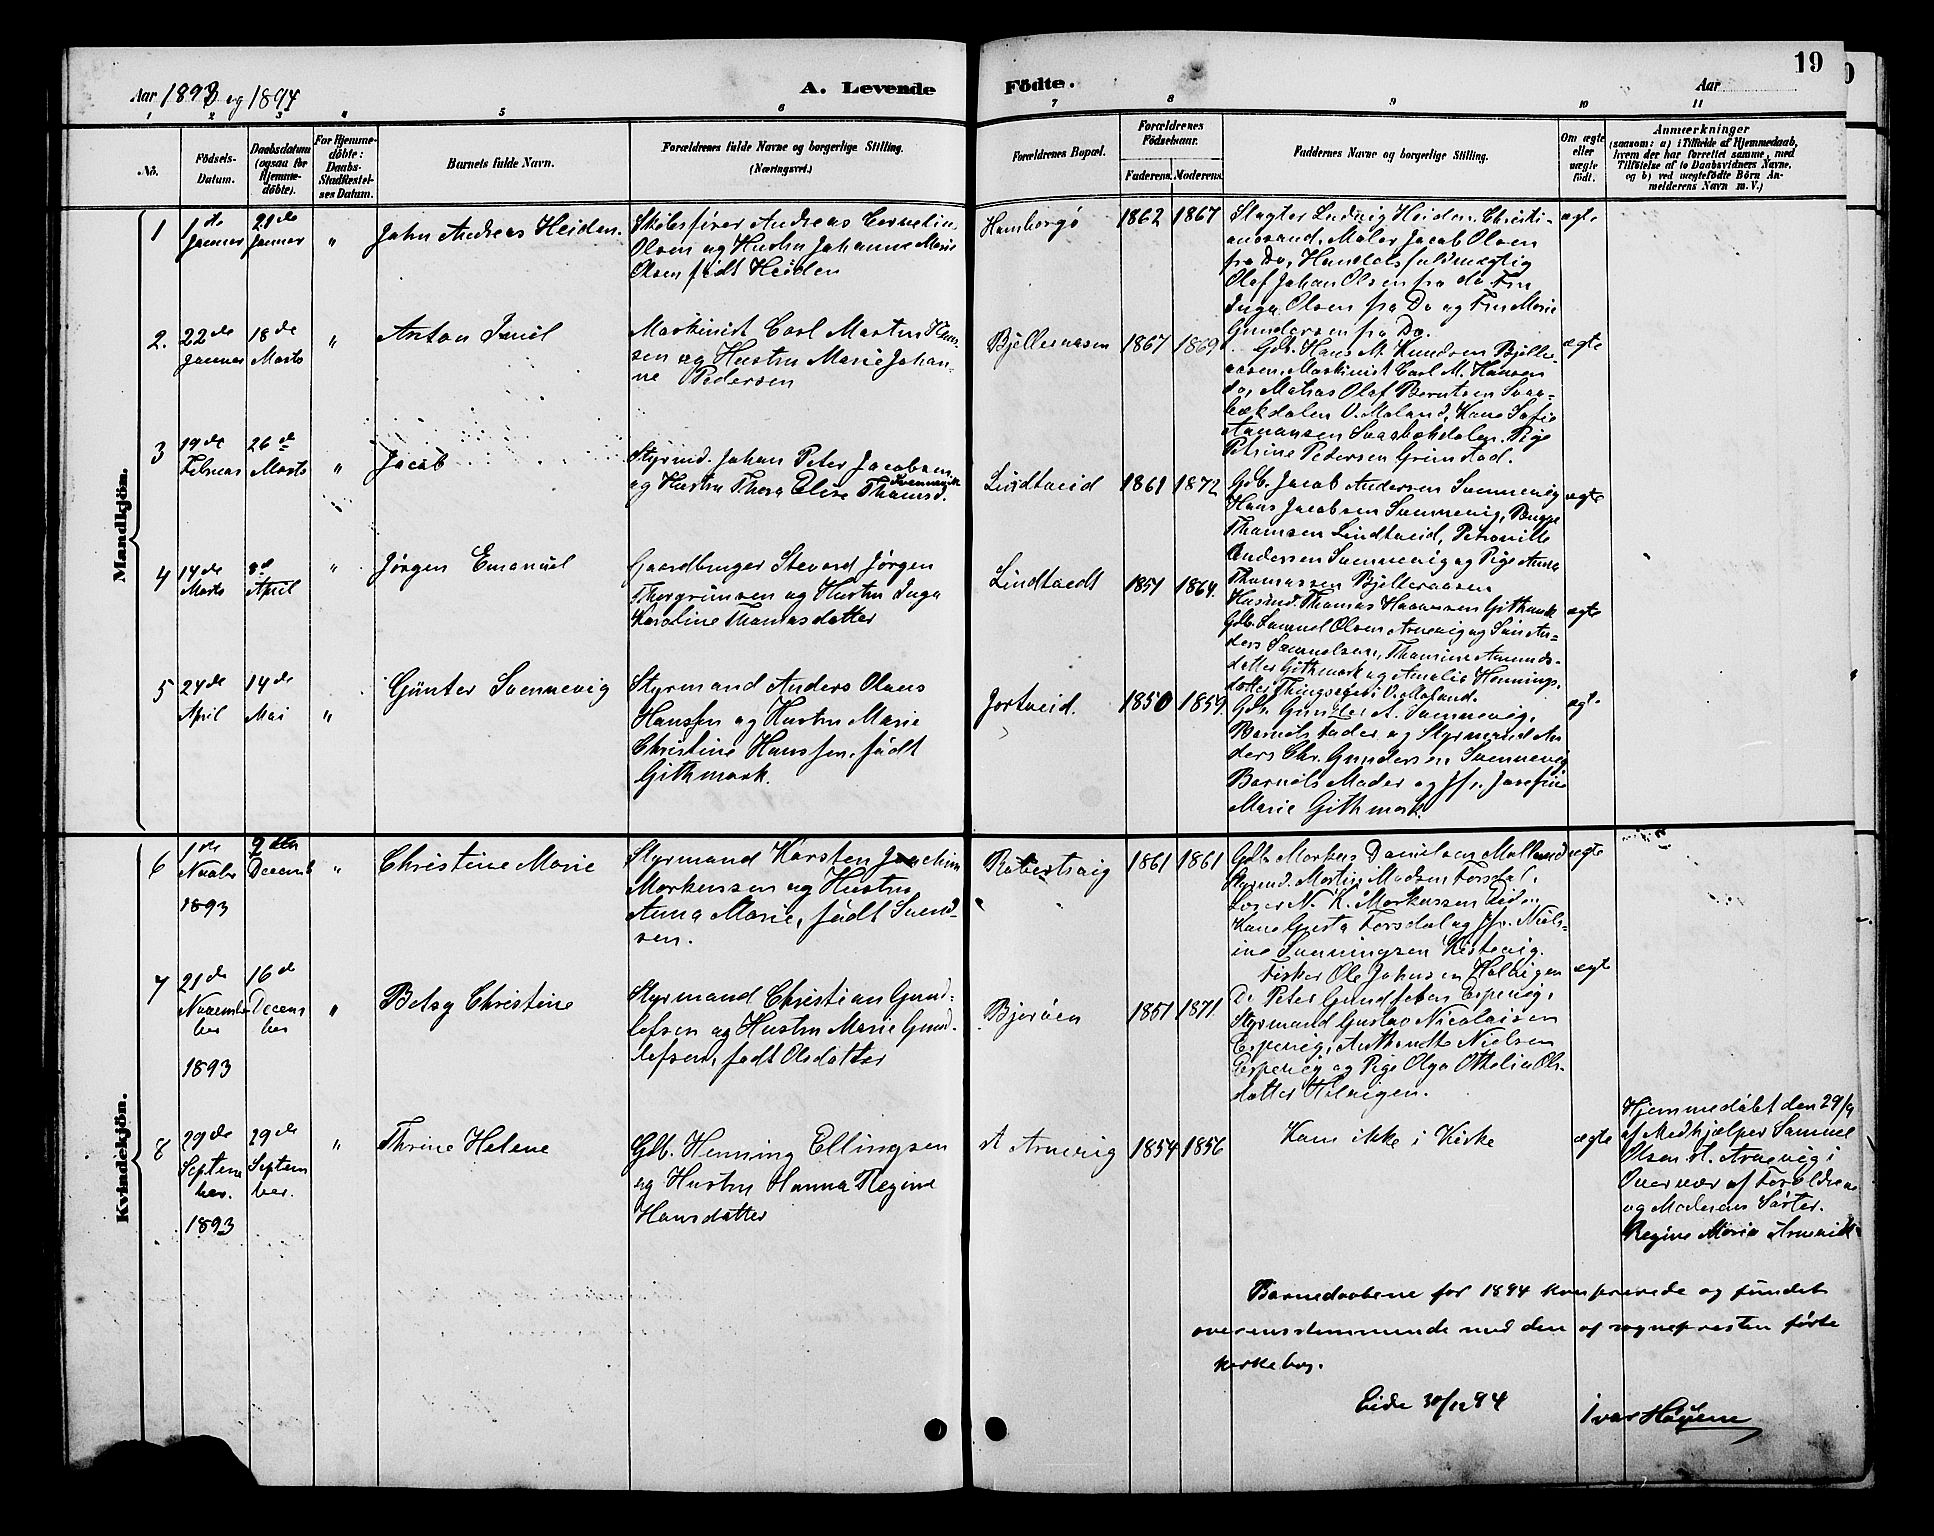 Aar 1893 og 1894
A. Levende
Födte.
Aar
19
1
2
3
4
5
6
7
8
9
10
11
No.
Födsels-
Datum.
Daabsdatum
(ogsaa for
Hjemme-
döbte).
For Hjemme-
döbte:
Daabs-
Stadfæstel-
ses Datum.
Barnets fulde Navn.
Forældrenes fulde Navne og borgerlige Stilling.
(Næringsvei.)
Forældrenes Bopæl.
Forældrenes
Födselsaar.
Faderens. Moderens.
Faddernes Navne og borgerlige Stilling.
Om ægte
eller
uægte
födt.
Anmærkninger
(saasom: a) i Tilfælde af Hjemmedaab,
hvem der har forrettet samme, med
Tilföielse af to Daabsvidners Navne,
og b) ved uægtefödte Börn An-
melderens Navn m. V.)
Mandkjön.
1
1de
Januar
21de
Januar
"
John Andreas Heiden.
Skibsfører Andreas Cornelius
Olsen og Hustru Johanne Marie
Olsen født Heiden
Hamborgö
1862
1867
Slagter Ludvig Heiden Christi-
anssand, Maler Jacob Olsen
fra Do, Handelsfuldmægtig
Olaf Johan Olsen fra do. Fru
Inga Olsen fra Do og Fru Marie
Gundersen fra Do.
ægte
2.
22de
Januar
18de
Marts
"
Anton Emil
Maskinist Carl Martin Han-
sen og Hustru Marie Johan-
ne Pedersen
Bjelleraasen
1867
1869
Gdb. Hans M. Knudsen Bjelle-
raasen, Maskinist Carl M. Hansen
do, Mathias Olaf Berntsen Svaa-
bækdalen V. Moland, Kone Sofie
Svaabekdalen. Pige
Petrine Pedersen Grimstad.
ægte
3
19de
Februar
26de
Marts
"
Jacob
Styrmd. Johan Peter Jacobsen
Svennevik
og Hustru Thora Elise Thomsd.
Lindtveid
1861
1872
Gdb. Jacob Andersen Svennevig
Hans Jacobsen Svennevig,
Thomsen Lindtveid, Petronille
Andersen Svennevig og Pige Anna
Thomassen Bjelleraasen
ægte
4
14de
Marts
8de
April
"
Jørgen Emanuel
Gaardbruger Stevard Jørgen
Thorgrimsen og Hustru Inga
Karoline Thomasdatter
Lindtvedt
1851
1864.
Husmd. Thomas Githmark
Gdb. Samuel Olsen Arnevig og An-
ders Samuelsen, Thomine Amunds-
datter Githmark og Amalie Hennings-
datter V. Moland.
ægte
5
24de
April
14de
Mai
"
Günter Svennevig
Styrmand Anders Olaus
Hanssen og Hustru Marie
Christine Hanssen, født
Githmark.
Jortveid.
1850
1859.
Gdb. Gunder A. Svennevig,
Barnets Fader og Styrmand An-
ders Chr. Gundersen Svennevig
Barnets Moder og Jfr. Josefine
Marie Githmark
ægte
Kvindekjön.
6
1de
Novbr
1893
9de
Decemb
"
Christine Marie
Styrmand Karsten Joachim
Markussen og Hustru
Anna Marie, født Svend-
sen.
Robertsvig
1861
1861
Gdb. Markus Danielsen Molland
Styrmd. Martin Madsen Torsdal,
Loser N. K. Markussen Eiden
Kone Gusta Torsdal og Jfr. Niels-
ine Svenningsen Kistevig.
ægte
7
21de
Novem-
ber
1893
16de
Decem-
ber
"
Betsy Christine
Styrmand Christian Gund-
lefsen og Hustru Marie Gund-
lefsen, født Olsdatter
Bjorøen
1851
1871.
Fisker Ole Johnsen Holvigen
Do Peter Gundersen Espevig,
Styrmand Gustav Nicolaisen
Espevig, Nielsen
Espevig og Pige Olga Othelia Ols-
datter Holvigen.
ægte
8
29de
Septem-
ber.
1893
29de
Septem-
ber.
"
Thrine Helene
Gdb. Henning Ellingsen
og Hustru Hanna Regine
Hansdatter
A Arnevig
1854
1856
Kom ikke i Kirke
ægte
Hjemmedøbt den 29/9
af Medhjælper Samuel
Olsen A. Arnevig i
Overvær af Foreldrene
og Moderens Søster.
Regine Maria Arnevik
Barnedaabene for 1894 konfererede og fundet
overensstemmende med den af sognepresten førte
kirkebog.
Eide 30/12 94
Ivar Høyem